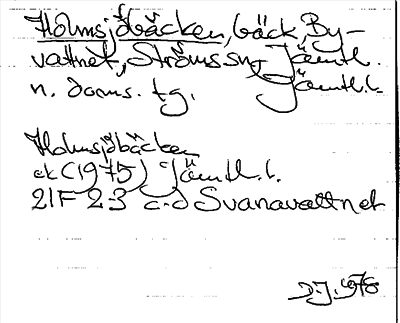 Holmsjöbäcken, bäck, By-
vattnet, Ströms sn, Jämtl.
n. doms. tg. Jämtl. l.
Holmsjöbäcken
ek (1975) Jämtl. l.
21F 2-3 c-d Svanavattnet
1978